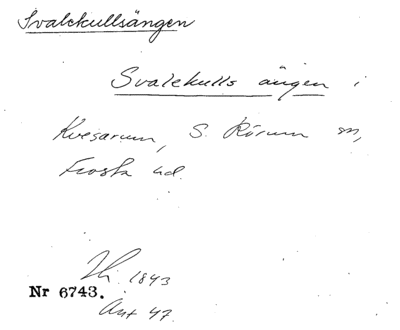 Svalekullsängen
Svalekulls ängen i
Kvesarum, S. Rörum sn,
Frosta hd.
1843
Nr 6743.
Ant 47.